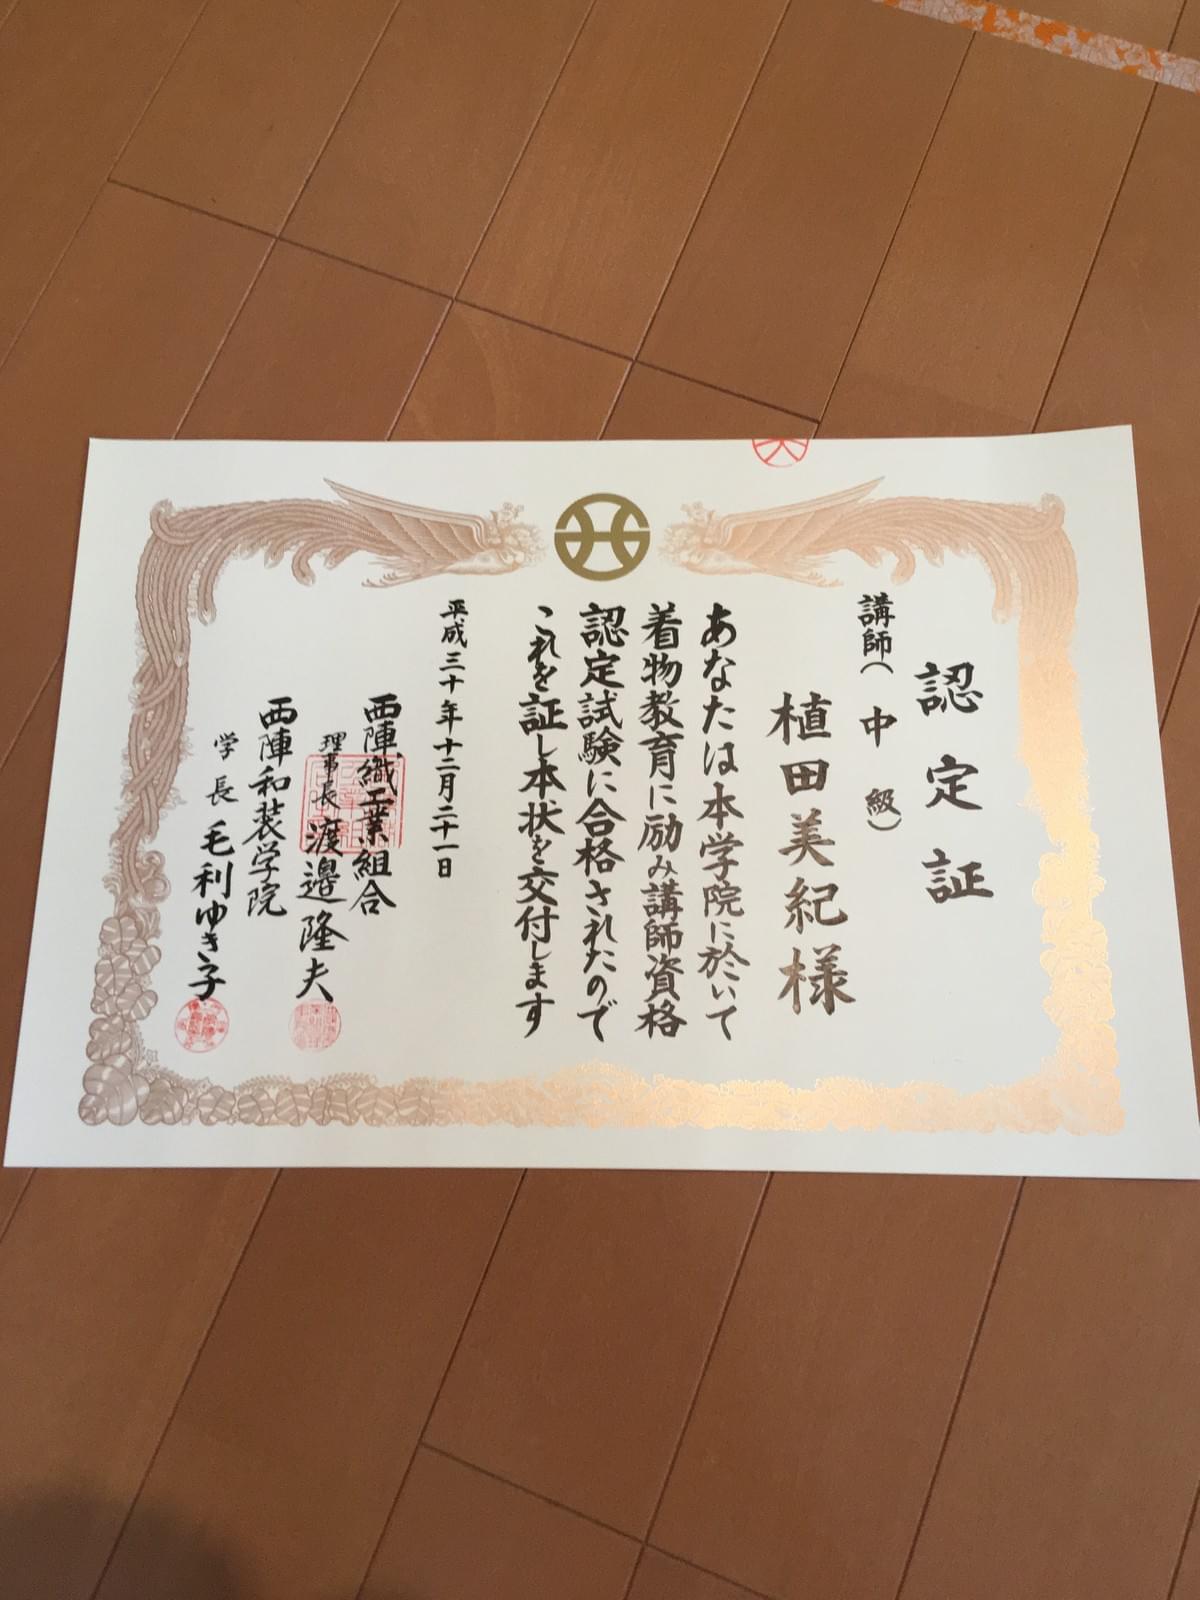 認定証
講師（中級）
植田美紀様
あなたは本学院に於いて
着物教育に励み講師資格
認定試験に合格されたので
これを証し本状を交付します
平成三十年十二月二十一日
西陣織工業組合
理事長 渡邉隆夫
西陣和装学院
学長 毛利ゆき子